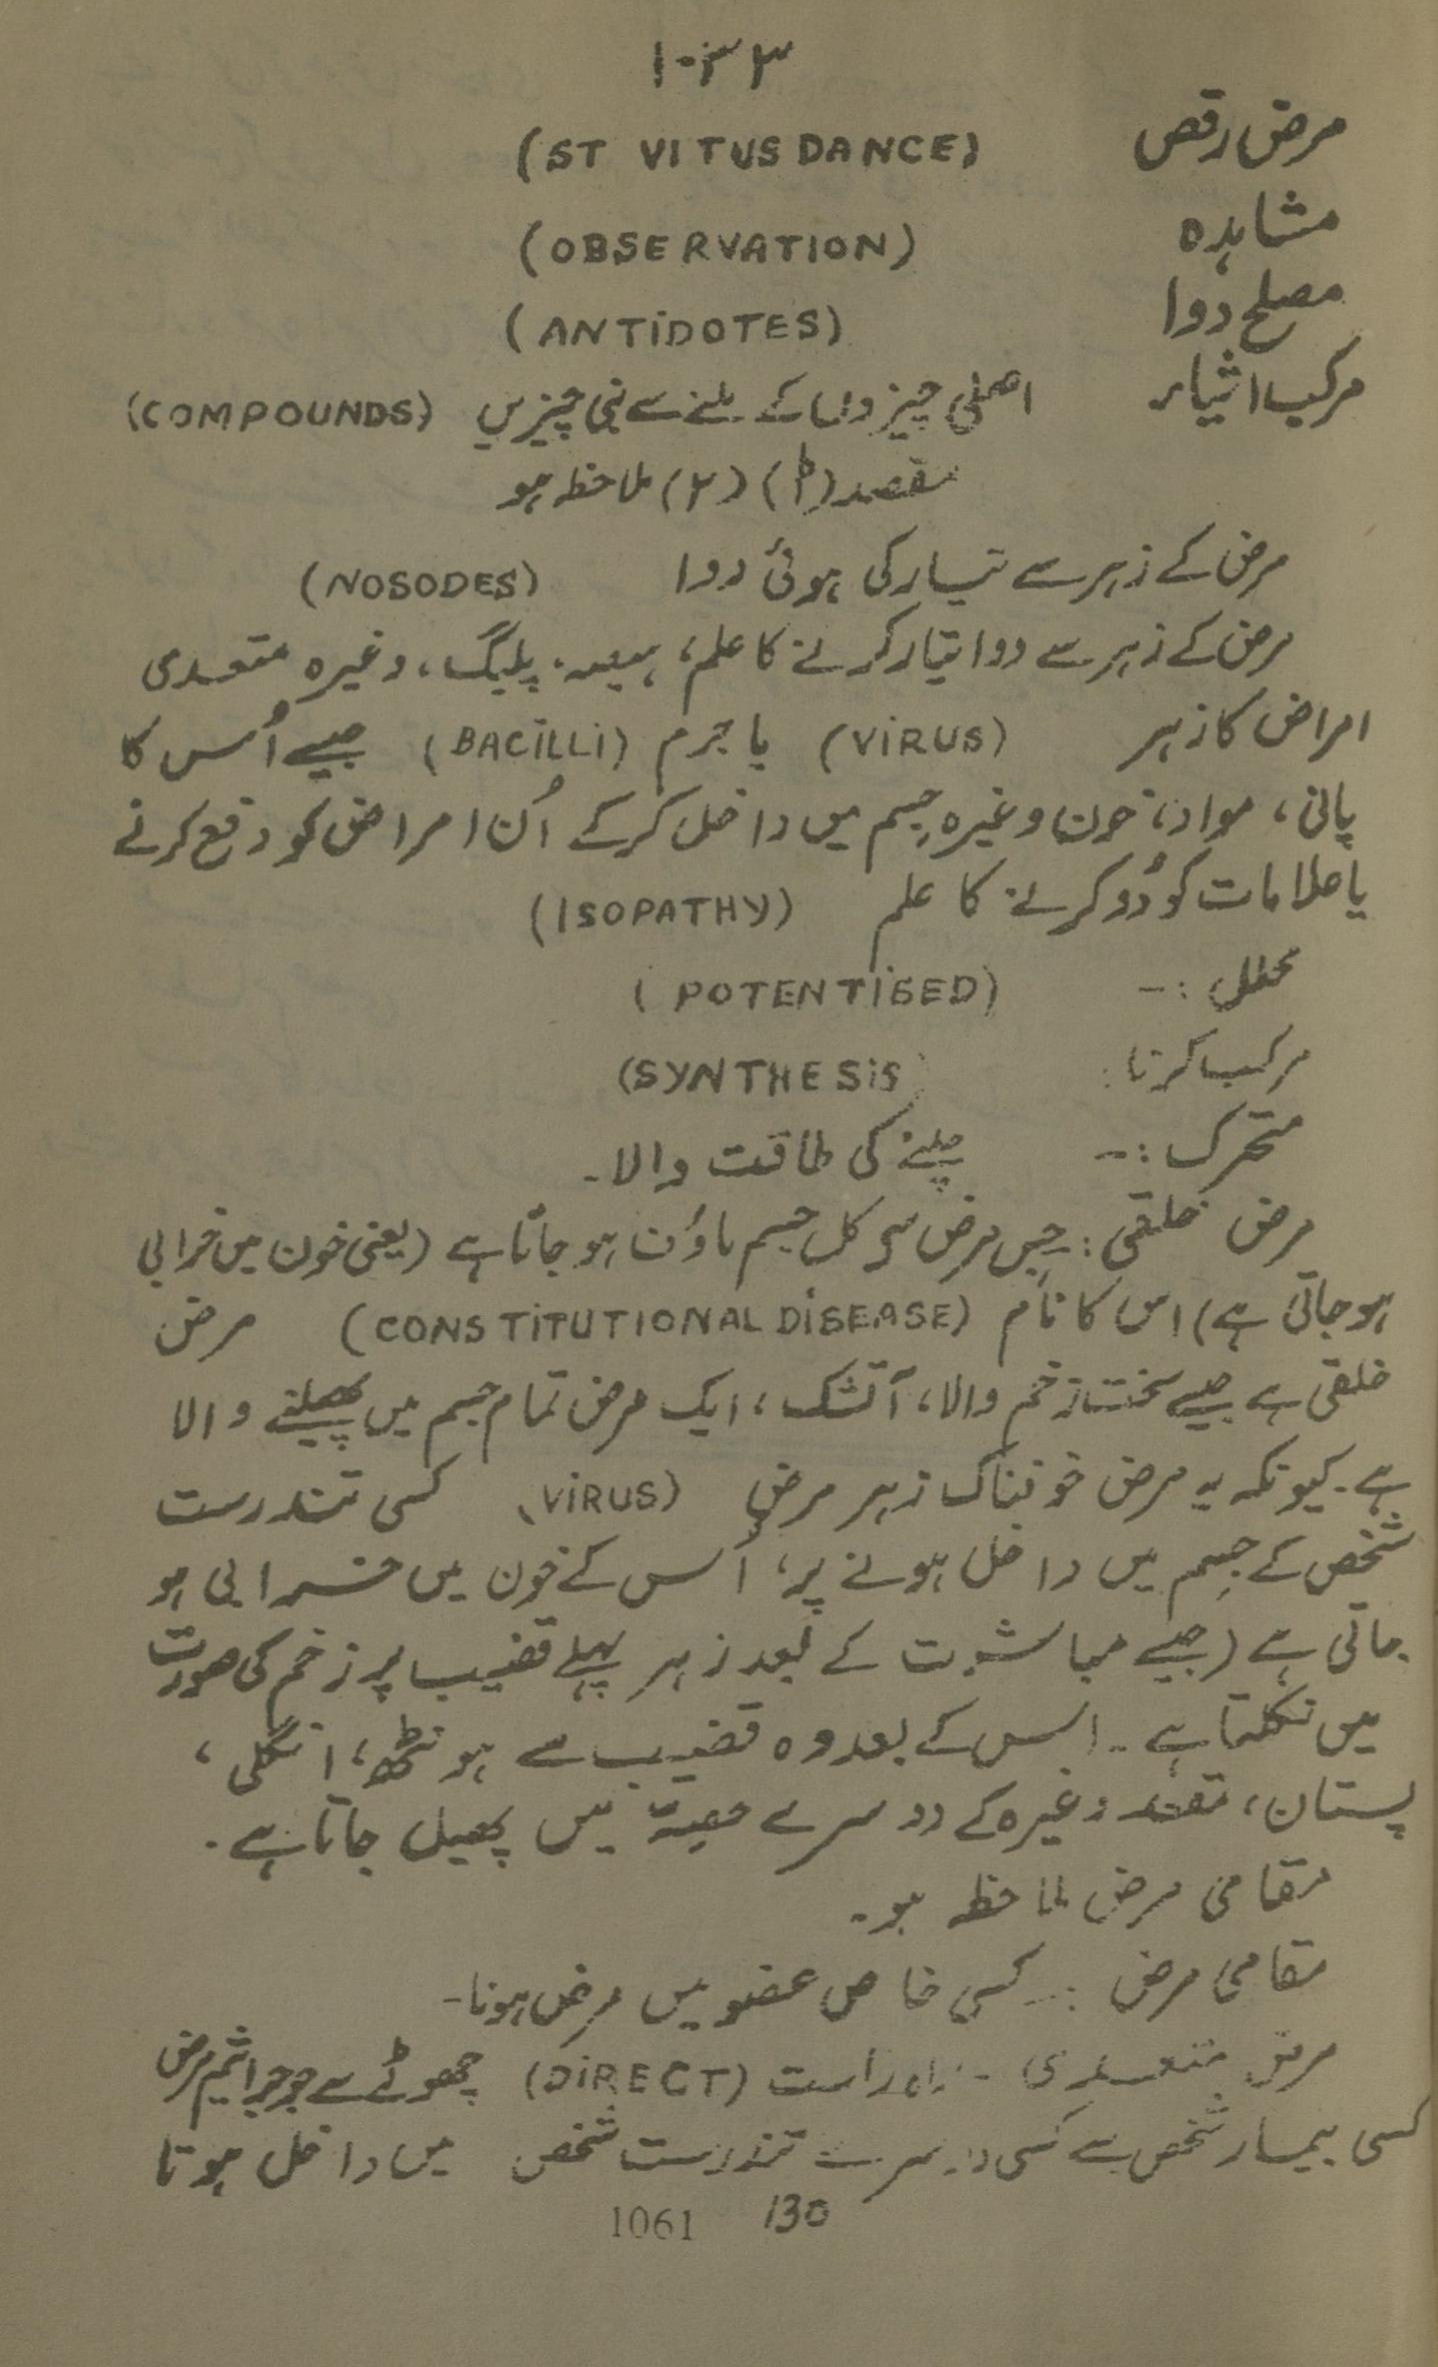 ۱۰۳۳
مرض رقص (ST VITUS DANCE)
مشاہدہ (OBSERVATION)
مصلح دوا (ANTIDOTES)
مرکب اشیاء اصلی چیزوں کے ملنے سے بنی چیزیں (COMPOUNDS)
مقصد (۲) ملاحظہ ہو
مرض کے زہر سے تیار کی ہوئی دوا (NOSODES)
مرض کے زہر سے دوا تیار کرنے کا علم، ہیضہ، پلیگ، وغیرہ متعدی
امراض کا زہر (VIRUS) یا جرم (BACILLI) جیسے اُس کا
پانی، مواد، خون وغیرہ جسم میں داخل کرکے اُن امراض کو دفع کرنے
یا علامات کو دُور کرنے کا علم (ISOPATHY)
محلل :- (POTENTISED)
مرکب کرنا: (SYNTHESIS
متحرک :- چلنے کی طاقت والا۔
مرض خلقی :- جس مرض سے کل جسم ماؤف ہو جاتا ہے (یعنی خون میں خرابی
ہو جاتی ہے) اس کا نام (CONSTITUTIONAL DISEASE) مرض
خلقی ہے جیسے سخت زخم والا، آتشک، ایک مرض تمام جسم میں پھیلنے والا
ہے۔ کیونکہ یہ مرض خوفناک زہر مرض (VIRUS) کسی تندرست
شخص کے جسم میں داخل ہونے پر، اُس کے خون میں خرابی ہو
جاتی ہے (جیسے مباشرت کے بعد زہر پہلے قضیب پر زخم کی صورت
میں نکلتا ہے۔ اس کے بعد وہ قضیب سے ہونٹھ، انگلی،
پستان، مقعد وغیرہ کے دوسرے حصہ میں پھیل جاتا ہے۔
مقامی مرض ملاحظہ ہو۔
مقامی مرض :- کسی خاص عضو میں مرض ہونا۔
مرض متعدی - راہ راست (DIRECT) چھوٹے سے جو جراثیم مرض
کسی بیمار شخص سے کسی دوسرے تندرست شخص میں داخل ہوتا
1061 130